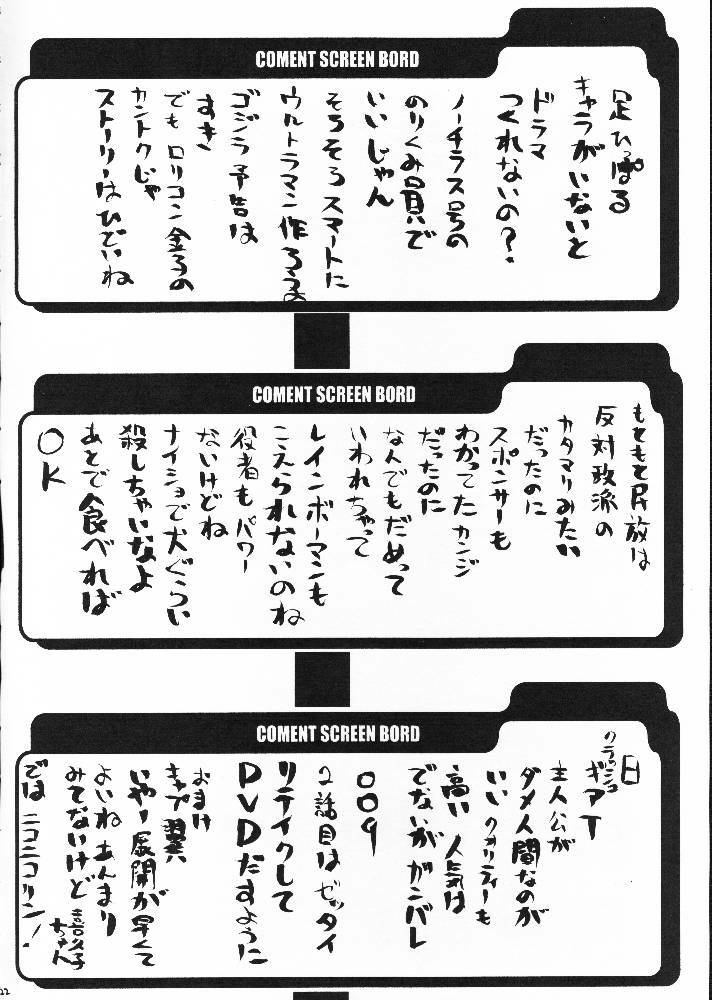 COMENT SCREEN BORD
足ひっぱる
キャラがいないと
ドラマ
つくれないの？
ノーチラス号の
のりくみ員で
いいじゃん
そろそろスマートに
ウルトラマン作ろうよ
ゴジラ予告は
すき、
でもロリコン金子の
カントクじゃ
ストーリーはひどいね
COMENT SCREEN BORD
もともと民放は
反対政派の
カタマリみたい
だったのに
スポンサーも
わかってたカンジ
だったのに
なんでもだめって
いわれちゃって
レインボーマンも
こえられないのね
役者もパワー
ないけどね
ナイショで犬ぐらい
殺しちゃいなよ
あとで食べれば
OK
COMENT SCREEN BORD
日
クラッシュ
ギアT
主人公が
ダメ人間なのが
いいクオリティーも
高い人気は
でないがガンバレ
009
2話目はゼッタイ
リテイクして
DVDだすように
おまけ
キャプ翼
いやー展開が早くて
よいねあんまり
みてないけど
喜久子
ちゃん
では ニコニコリン！
22